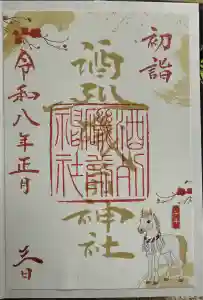 初詣
酒列磯前神社
酒列
磯前
神社
令和八年正月
三日